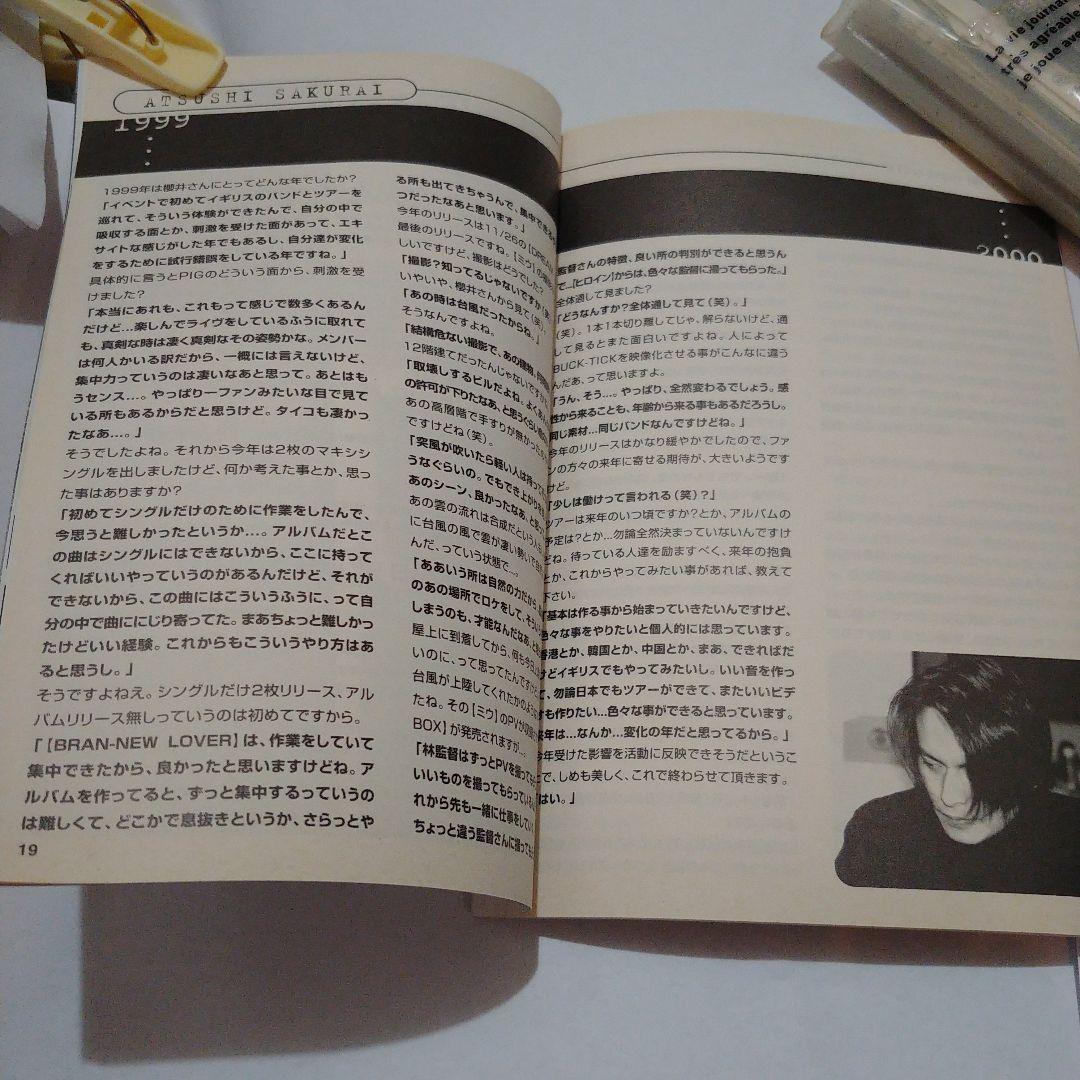 ATSUSHI SAKURAI
1999
1999年は櫻井さんにとってどんな年でしたか?
「イベントで初めてイギリスのバンドとツアーを
巡れて、そういう体験ができたんで、自分の中で
吸収する面とか、刺激を受けた面があって、エキ
サイトな感じがした年でもあるし、自分達が変化
をするために試行錯誤をしている年ですね。」
具体的に言うとPIGのどういう面から、刺激を受
けました?
「本当にあれも、これもって感じで数多くあるん
だけど…楽しんでライヴをしているふうに取れて
も、真剣な時は凄く真剣なその姿勢かな。メンバー
は何人かいる訳だから、一概には言えないけど、
集中力っていうのは凄いなあと思って。あとはも
うセンス…。やっぱり一ファンみたいな目で見て
いる所もあるからだと思うけど。タイコも凄かっ
たなあ…。」
そうでしたよね。それから今年は2枚のマキシシ
ングルを出しましたけど、何か考えた事とか、思っ
た事はありますか?
「初めてシングルだけのために作業をしたんで、
今思うと難しかったというか…。アルバムだとこ
の曲はシングルにはできないから、ここに持って
くればいいやっていうのがあるんだけど、それが
できないから、この曲にはこういうふうに、って自
分の中で曲ににじり寄ってた。まあちょっと難しかっ
たけどいい経験。これからもこういうやり方はあ
ると思うし。」
そうですよねえ。シングルだけ2枚リリース、アル
バムリリース無しっていうのは初めてですから。
「【BRAN-NEW LOVER】は、作業をしていて
集中できたから、良かったと思いますけどね。ア
ルバムを作ってると、ずっと集中するっていうの
は難しくて、どこかで息抜きというか、さらっとや
19
る所も出てきちゃうんで、集中できる
つだったなあと思います。」
今年のリリースは11/26の【DREAM
最後のリリースですね。【ミウ】の撮影
しいですけど、撮影はどうでした?
「撮影?知ってるじゃないですか(笑)
いやいや、櫻井さんから見て(笑)。
「あの時は台風だったからね。」
そうなんですよね。
「結構危ない撮影で、あの建物、何
12階建てだったんじゃないですか
「取壊しするビルだよね。よくあん
の許可が下りたなあ、と思うくらい
あの高層階で手すりが無かった
ですけどね(笑)。
「突風が吹いたら軽い人は持って
うなぐらいの。でもでき上がりを
あのシーン、良かったなあ、と思っ
あの雲の流れは合成だという人も
に台風の風で雲が凄い勢いで
んだ、っていう状態で…。
「ああいう所は自然の力だから、
のあの場所でロケをして、そう
しまうのも、才能なんだなあ、と
屋上に到着してから、何も今日
いのに、って思ってたんですけど
台風が上陸してくれたかのように
たね。その【ミウ】のPVが収録
BOX】が発売されますが…
「林監督はずっとPVを撮って
いいものを撮ってもらっている
れから先も一緒に仕事をしてい
ちょっと違う監督さんに撮っても
2000
監督さんの特徴、良い所の判別ができると思うん
で…【ヒロイン】からは、色々な監督に撮ってもらった。」
全体通して見ました?
「どうなんすか?全体通して見て(笑)。」
(笑)。1本1本切り離してじゃ、解らないけど、通
して見るとまた面白いですよね。人によって
BUCK-TICKを映像化させる事がこんなに違う
んだあ、って思いますよ。
「うん、そう…。やっぱり、全然変わるでしょう。感
性から来ることも、年齢から来る事もあるだろうし。
同じ素材…同じバンドなんですけどね。」
今年のリリースはかなり緩やかでしたので、ファ
ンの方々の来年に寄せる期待が、大きいようです
けど。
「少しは働けって言われる(笑)?」
ツアーは来年のいつ頃ですか?とか、アルバムの
予定は?とか…勿論全然決まっていないんですけ
どね。待っている人達を励ますべく、来年の抱負
とか、これからやってみたい事があれば、教えて
下さい。
「基本は作る事から始まっていきたいんですけど、
色々な事をやりたいと個人的には思っています。
香港とか、韓国とか、中国とか、まあ、できればだ
けどイギリスでもやってみたいし。いい音を作っ
て、勿論日本でもツアーができて、またいいビデ
オも作りたい…色々な事ができると思っています。
来年は…なんか…変化の年だと思ってるから。」
今年受けた影響を活動に反映できそうだというこ
で、しめも美しく、これで終わらせて頂きます。
はい。」
La vie journal
très agréable
je joue ave